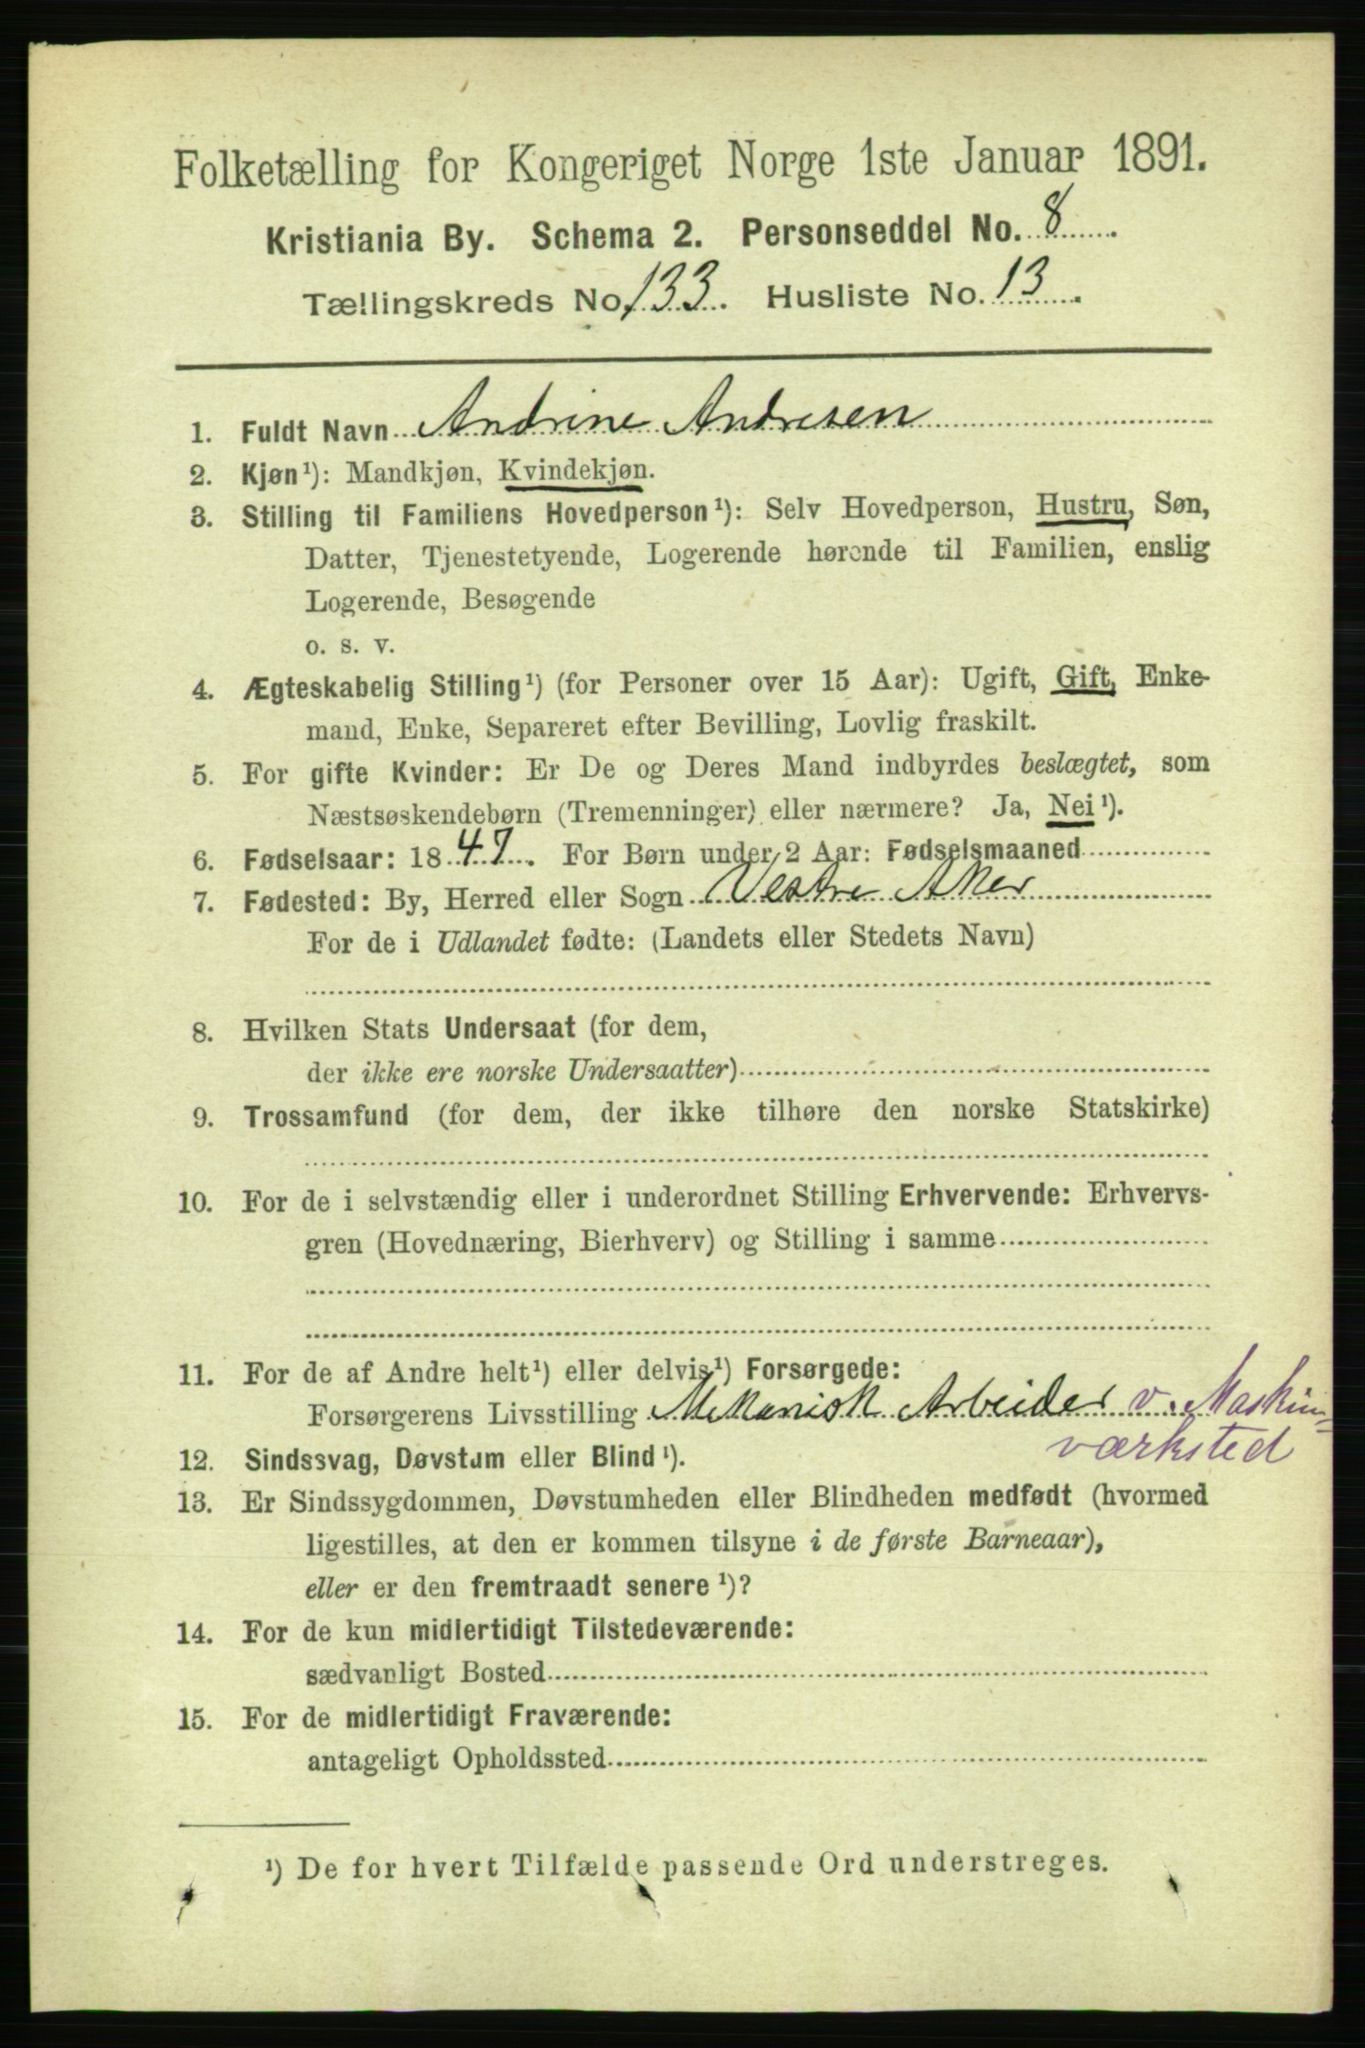 Folketælling for Kongeriget Norge 1ste Januar 1891.
Kristiania By. Schema 2. Personseddel No. 8
Tællingskreds No. 133. Husliste No. 13
1. Fuldt Navn Andrine Andresen
2. Kjøn¹): Mandkjøn, Kvindekjøn.
3. Stilling til Familiens Hovedperson¹): Selv Hovedperson, Hustru, Søn,
Datter, Tjenestetyende, Logerende hørende til Familien, enslig
Logerende, Besøgende
o. s. v.
4. Ægteskabelig Stilling¹) (for Personer over 15 Aar): Ugift, Gift, Enke-
mand, Enke, Separeret efter Bevilling, Lovlig fraskilt.
5. For gifte Kvinder: Er De og Deres Mand indbyrdes beslægtet, som
Næstsøskendebørn (Tremenninger) eller nærmere? Ja, Nei¹).
6. Fødselsaar: 1847. For Børn under 2 Aar: Fødselsmaaned
7. Fødested: By, Herred eller Sogn Vestre Aker
For de i Udlandet fødte: (Landets eller Stedets Navn)
8. Hvilken Stats Undersaat (for dem,
der ikke ere norske Undersaatter)
9. Trossamfund (for dem, der ikke tilhøre den norske Statskirke)
10. For de i selvstændig eller i underordnet Stilling Erhvervende: Erhvervs-
gren (Hovednæring, Bierhverv) og Stilling i samme
11. For de af Andre helt¹) eller delvis¹) Forsørgede:
Forsørgerens Livsstilling Mekanisk Arbeider v. Maskin=
værksted
12. Sindssvag, Døvstum eller Blind¹).
13. Er Sindssygdommen, Døvstumheden eller Blindheden medfødt (hvormed
ligestilles, at den er kommen tilsyne i de første Barneaar),
eller er den fremtraadt senere¹)?
14. For de kun midlertidigt Tilstedeværende:
sædvanligt Bosted
15. For de midlertidigt Fraværende:
antageligt Opholdssted
¹) De for hvert Tilfælde passende Ord understreges.